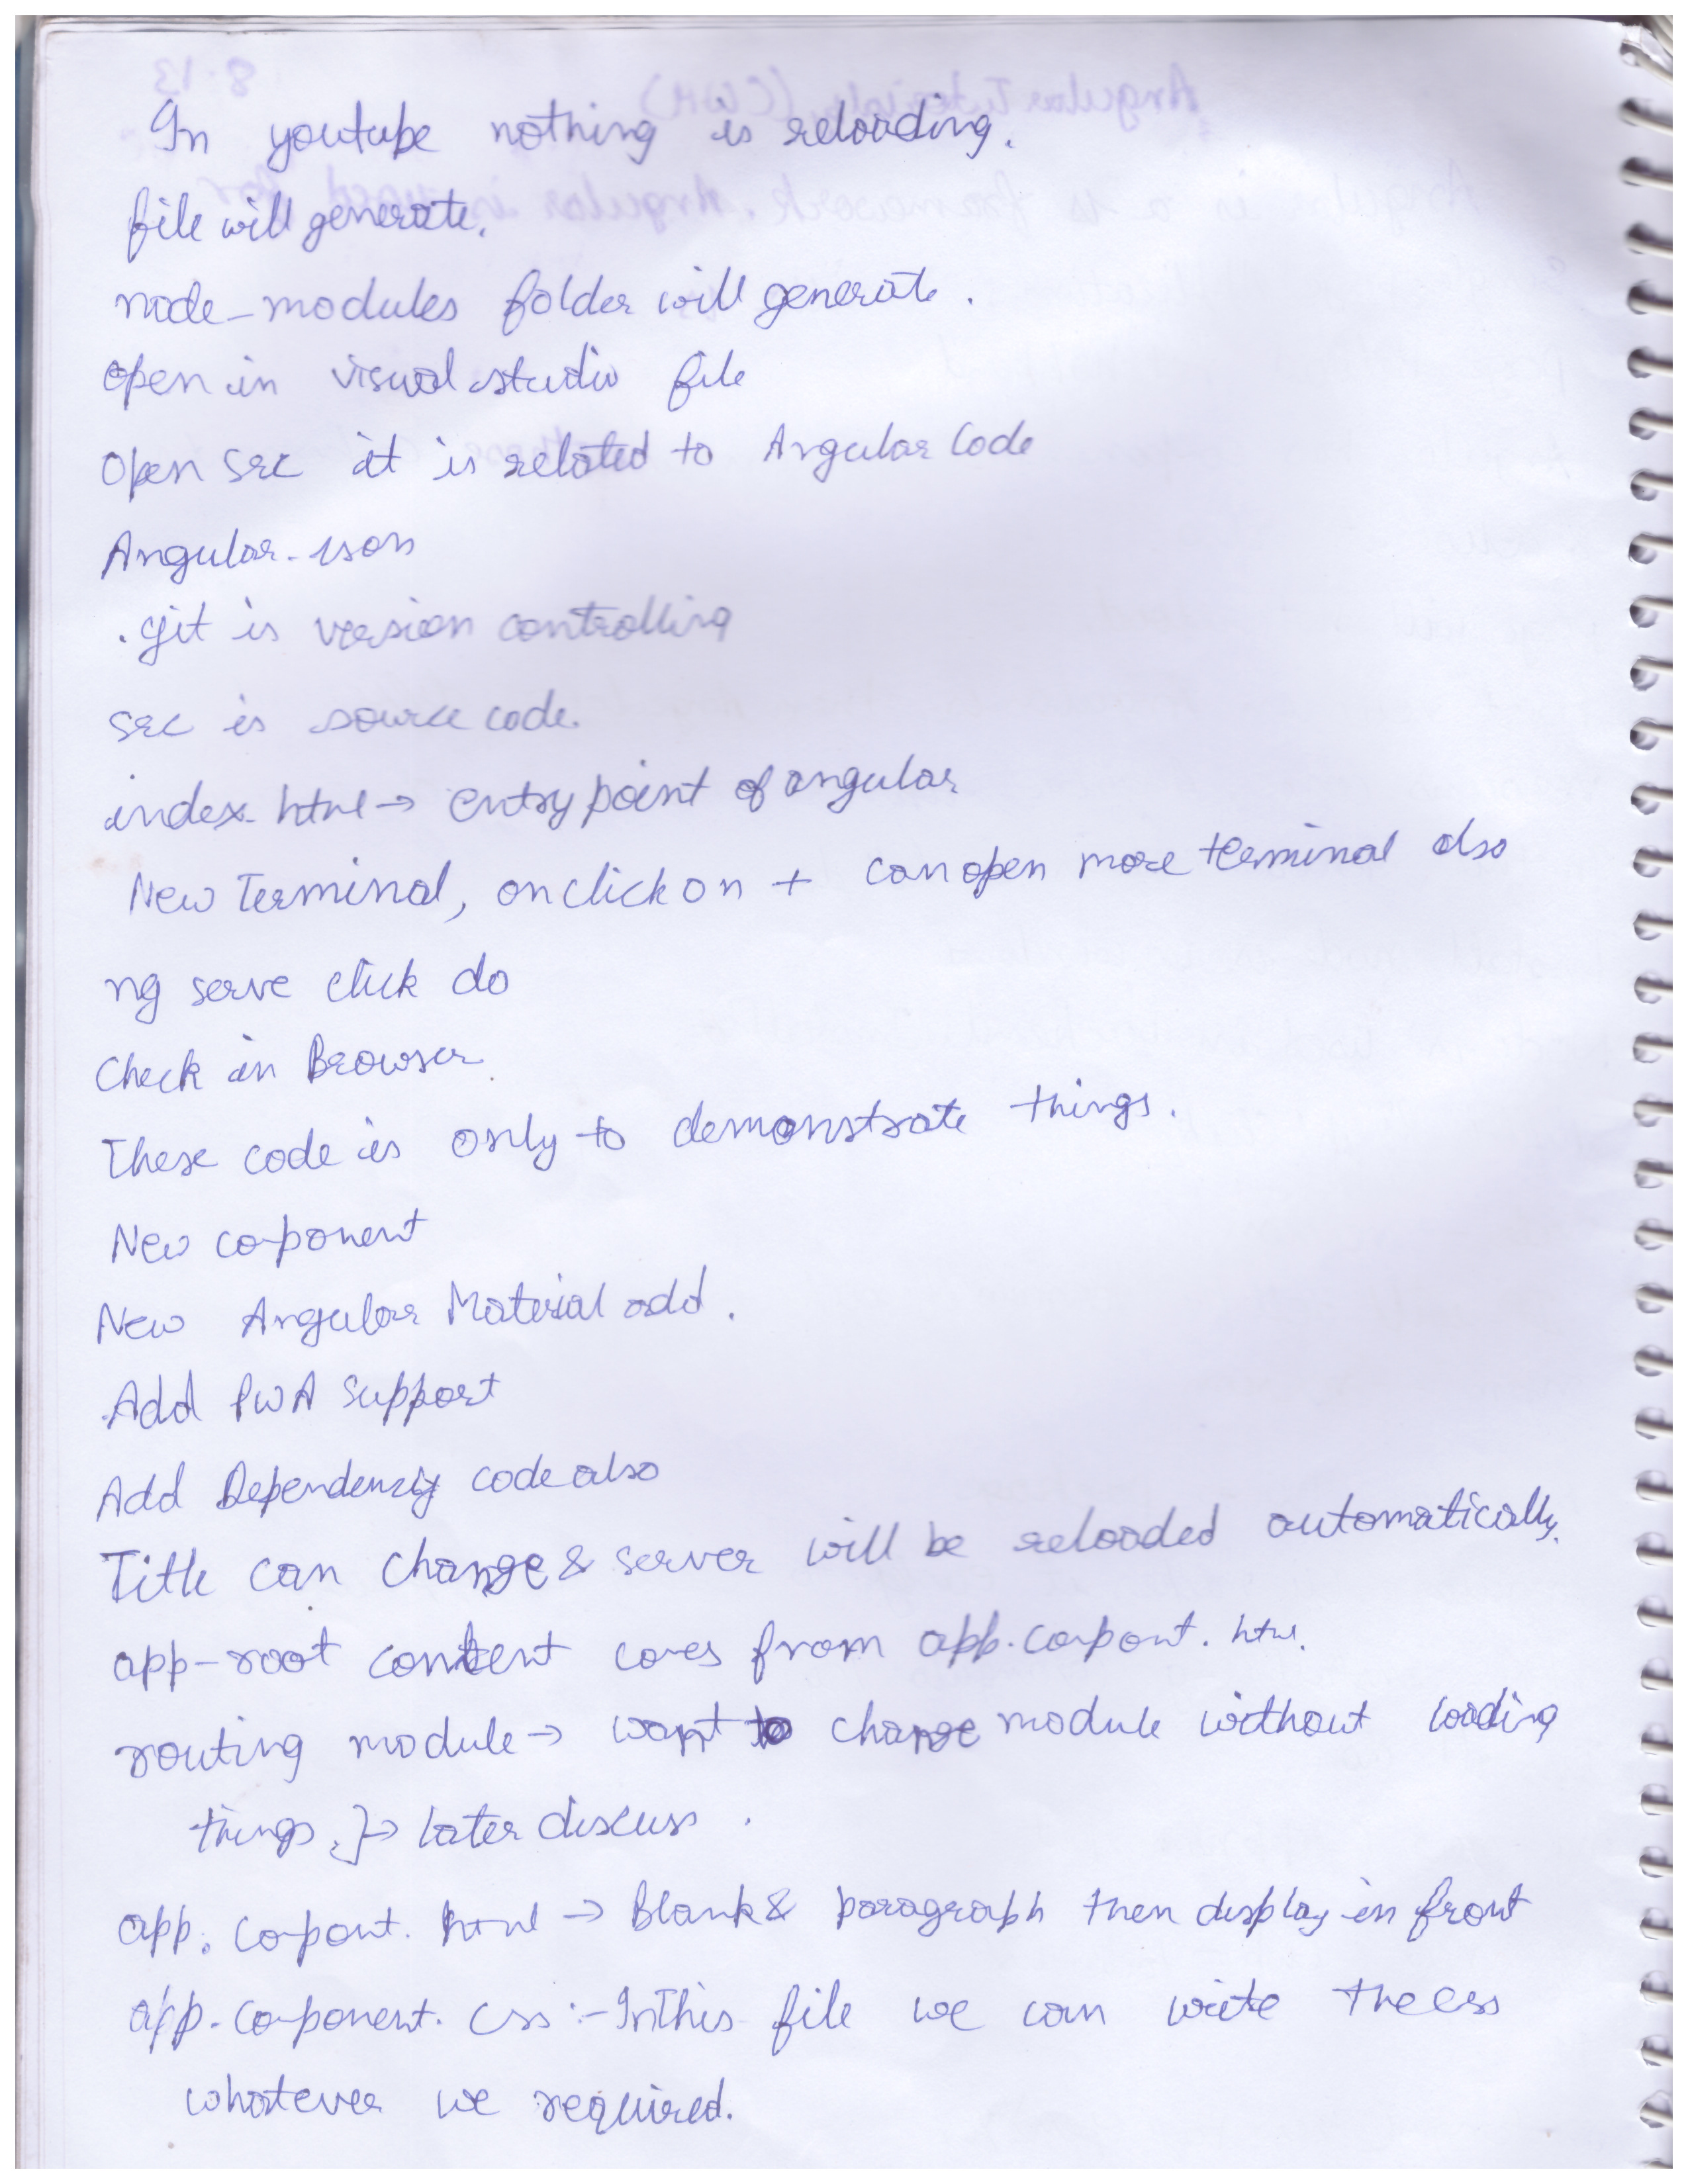 In youtube nothing is reloading.
file will generate.
node-modules folder will generate.
open in visual studio file
Open src it is related to Angular Code
Angular-json
.git is version controlling
src is source code.
index.html → entry point of angular
New Terminal, on click on + can open more terminal also
ng serve click do
Check in Browser.
These code is only to demonstrate things.
New coponent
New Angular Material add.
Add PWA Support
Add Dependency code also
Title can change & server will be reloaded automatically.
app-root content coves from app.copont.html.
routing module → want to change module without loading
things.}→ later discuss.
app.copont.html → Blank & paragraph then display in front
app.coponent.css :- In this file we can write the css
whatever we required.